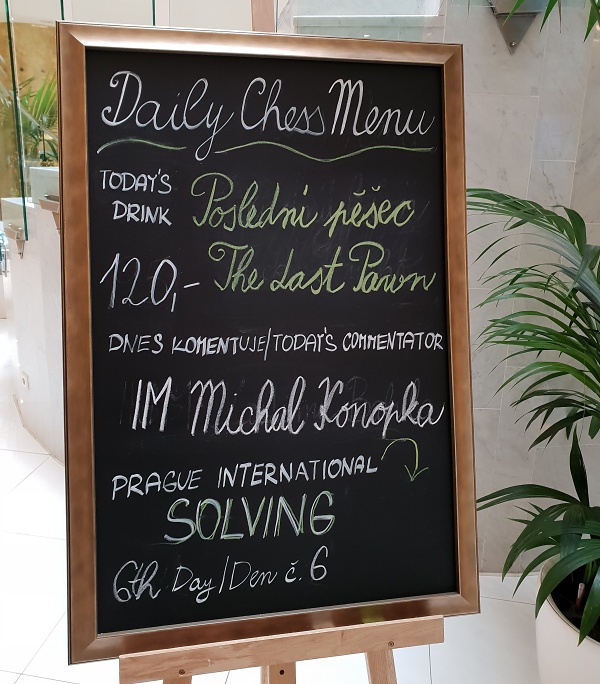 Daily Chess Menu
TODAY'S DRINK
Poslední pěšec
120,- The Last Pawn
DNES KOMENTUJE/TODAY'S COMMENTATOR
IM Michal Konopka
PRAGUE INTERNATIONAL
SOLVING
6th Day/Den č. 6